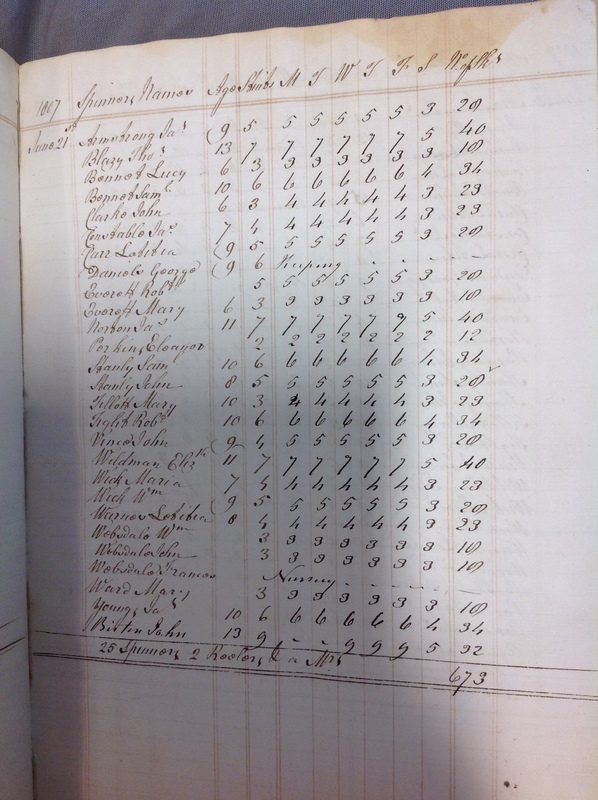 1807 Spinners Names Age Stints M T W T F S No of Sks
June 21st Armstrong Jas (9 5 5 5 5 5 5 3 28
Blazy Thos 13 7 7 7 7 7 7 5 40
Bennet Lucy 6 3 3 3 3 3 3 3 18
Bennet Saml 10 6 6 6 6 6 6 4 34
Clarke John 6 3 4 4 4 4 4 3 23
Constable Jas 7 4 4 4 4 4 4 3 23
Carr Letitia (9 5 5 5 5 5 5 3 28
Daniels George (9 6
Everett Robt 5 5 5 5 5 5 3 28
Everett Mary 6 3 3 3 3 3 3 3 18
Norton Jas 11 7 7 7 7 7 7 5 40
Perkins Eleanor 2 2 2 2 2 2 2 12
Stanly Sam 10 6 6 6 6 6 6 4 34
Stanly John 8 5 5 5 5 5 5 3 28
Tillott Mary 10 3 4 4 4 4 4 3 23
Robt 10 6 6 6 6 6 6 4 34
Vince John (9 4 5 5 5 5 5 3 28
Wildman Elizth 11 7 7 7 7 7 7 5 40
Wick Maria 7 4 4 4 4 4 4 3 23
Wick Wm (9 5 5 5 5 5 5 3 28
Warnes Letitia 8 4 4 4 4 4 4 3 23
Websdale Wm 3 3 3 3 3 3 3 18
Websdale John 3 3 3 3 3 3 3 18
Websdale Frances Nursery
Ward Mary 3 3 3 3 3 3 3 18
Young Jas 10 6 6 6 6 6 6 4 34
John 13 9 - - 9 9 9 5 32
25 Spinners 2 Reelers & a Mrs
673